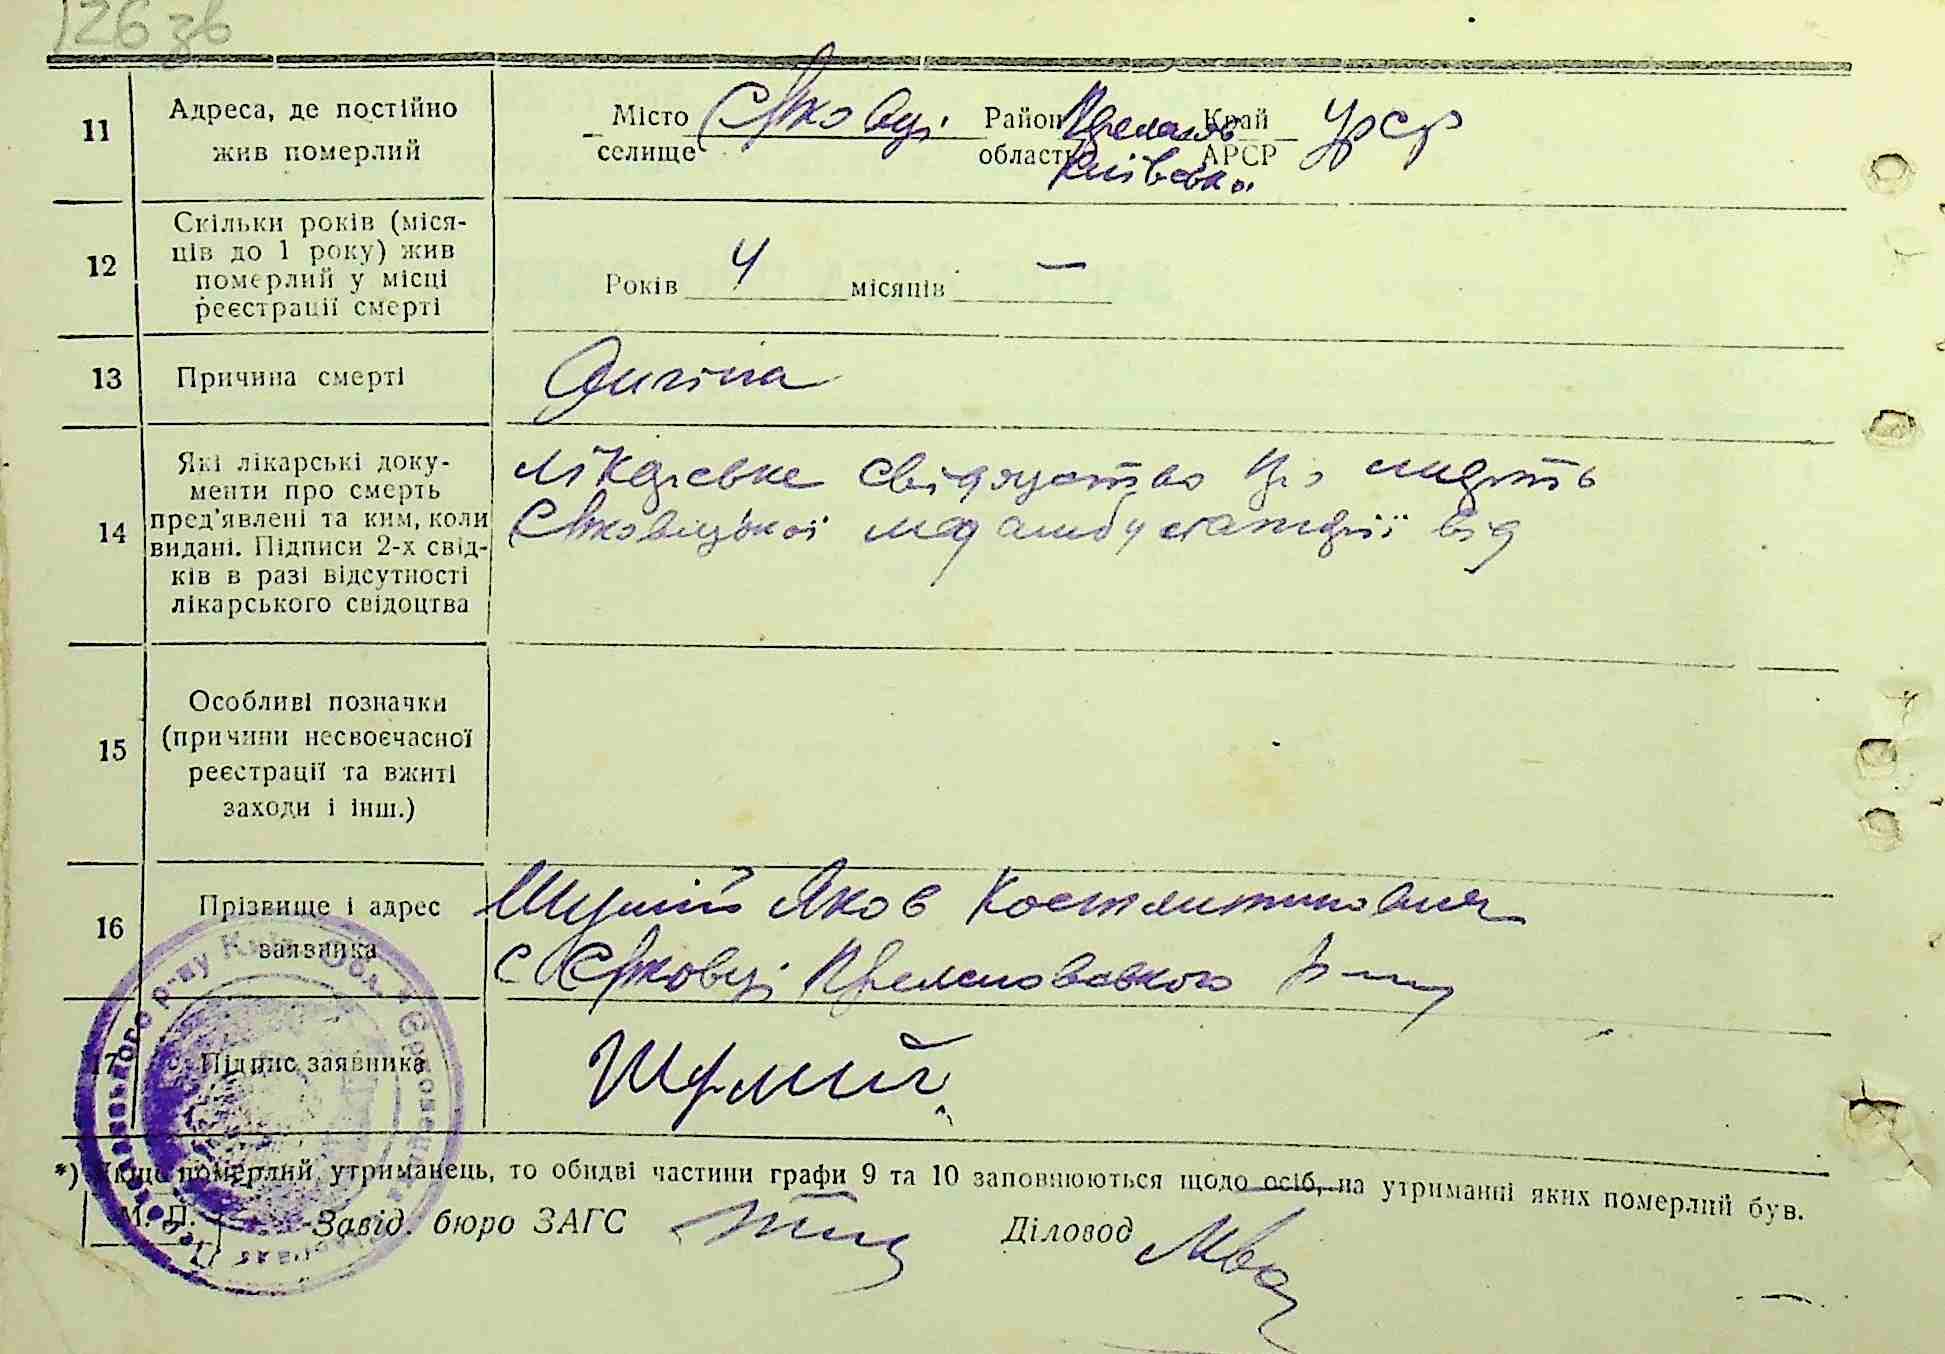 126 зв
11 Адреса, де постійно жив померлий Місто селище Єрковці Район область Київська Край АРСР УРСР
12 Скільки років (місяців до 1 року) жив померлий у місці реєстрації смерті Років 4 місяців —
13 Причина смерті Ангіна
14 Які лікарські документи про смерть пред'явлені та ким, коли видані. Підписи 2-х свідків в разі відсутності лікарського свідоцтва
Лікарське свідоцтво про смерть
Єрковецької медамбулаторії від
15 Особливі позначки (причини несвоєчасної реєстрації та вжиті заходи і інш.)
16 Прізвище і адрес заявника
Шумій Яков Костянтинович
с Єрковці р-ну
17 Підпис заявника Шумий
*) Якщо померлий утриманець, то обидві частини графи 9 та 10 заповнюються щодо осіб, на утриманні яких померлий був.
М. П. Завід. бюро ЗАГС Діловод